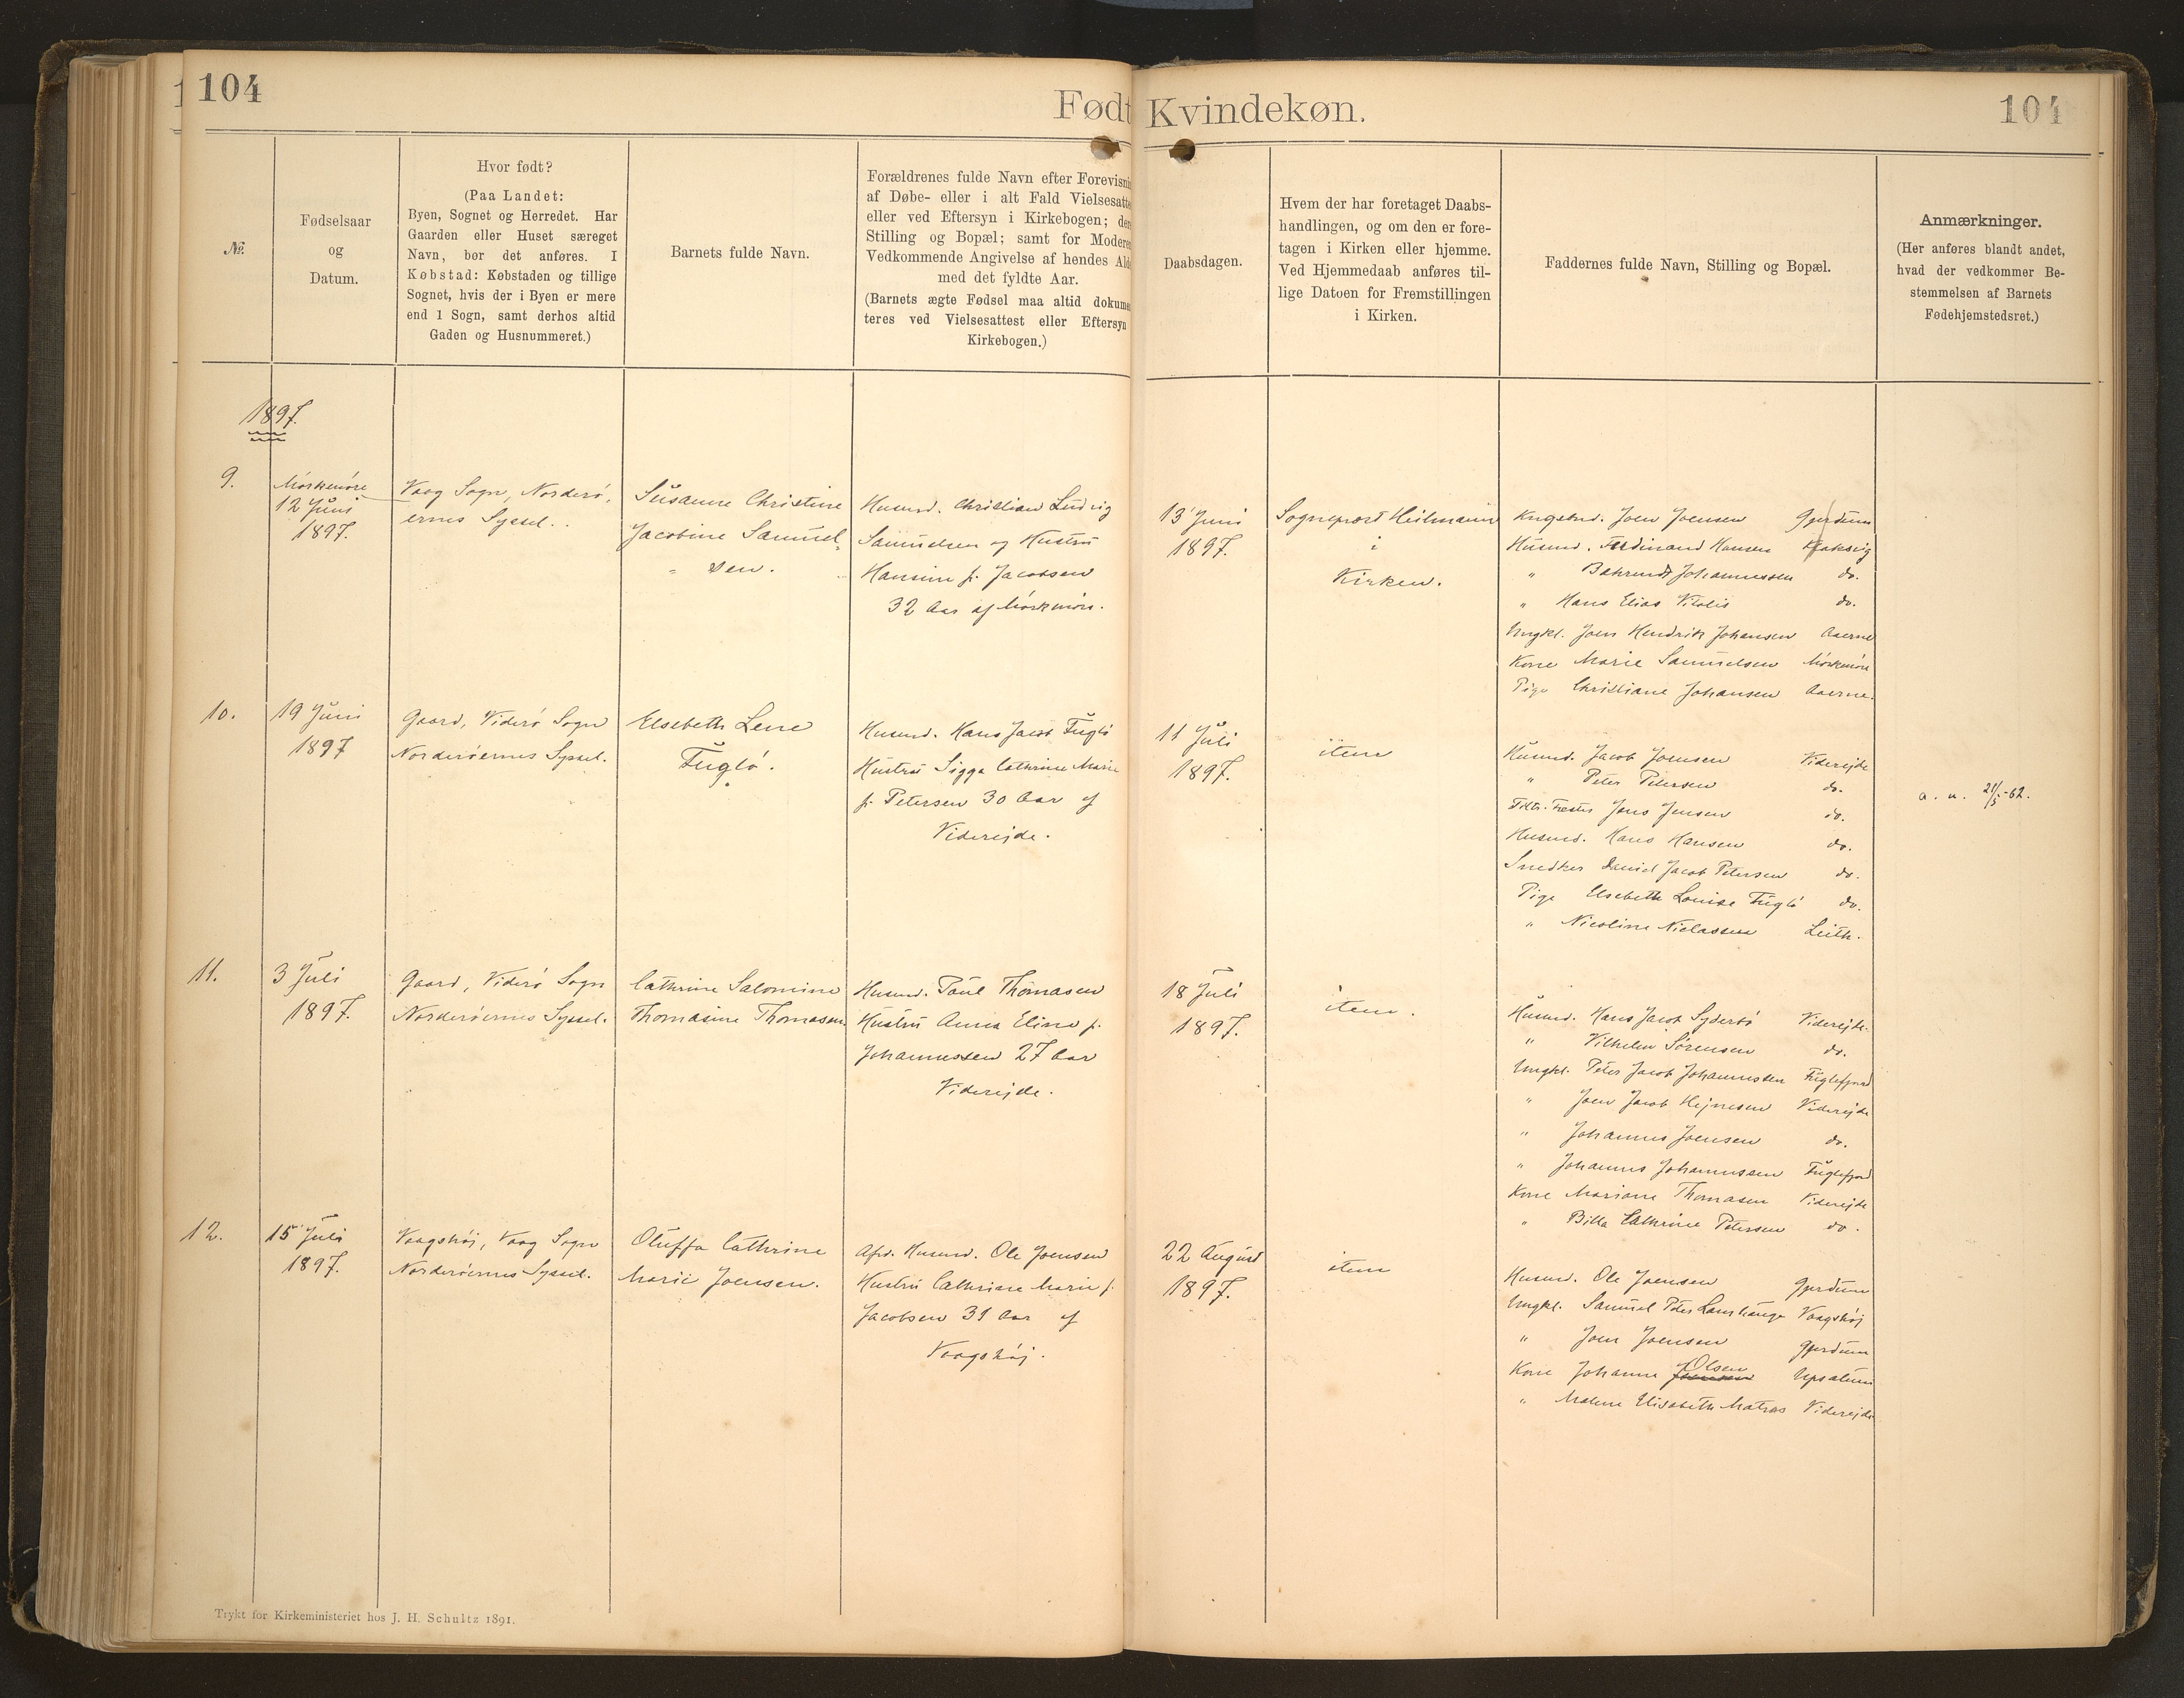 104
Født
Kvindekøn.
104
№
Fødselsaar
og
Datum.
Hvor født?
(Paa Landet:
Byen, Sognet og Herredet. Har
Gaarden eller Huset særeget
Navn, bør det anføres. I
Købstad: Købstaden og tillige
Sognet, hvis der i Byen er mere
end 1 Sogn, samt derhos altid
Gaden og Husnummeret.)
Barnets fulde Navn.
Forældrenes fulde Navn efter Forevisni
af Døbe- eller i alt Fald Vielsesatte
eller ved Eftersyn i Kirkebogen; der
Stilling og Bopæl; samt for Moder
Vedkommende Angivelse af hendes Ald
med det fyldte Aar.
(Barnets ægte Fødsel maa altid dokume
teres ved Vielsesattest eller Eftersyn
Kirkebogen.)
Daabsdagen.
Hvem der har foretaget Daabs-
handlingen, og om den er fore-
tagen i Kirken eller hjemme.
Ved Hjemmedaab anføres til-
lige Datoen for Fremstillingen
i Kirken.
Faddernes fulde Navn, Stilling og Bopæl.
Anmærkninger.
(Her anføres blandt andet,
hvad der vedkommer Be-
stemmelsen af Barnets
Fødehjemstedsret.)
1897.
9.
Mørkmøre
12 Juni
1897.
Vaag Sogn, Norderø-
ernes Syssel.
Susanne Christine
Jacobine Samuel-
sen.
Husmd. Christian Ludvig
Samuelsen og Hustru
Hansine f. Jacobsen
32 Aar af Mørkmøre.
13 Juni
1897.
Sogneprest Heilmann
i
Kirken.
Kngsbnd. Joen Joensen Gjerdum
Husmd. Ferdinand Hansen Klaksvig
" Johannessen do.
" Hans Elias Vitalis do.
Ungkl. Joen Hendrik Johansen Aaerne
Kone Marie Samuelsen Mørkmøre
Pige Christiane Johansen Aaerne.
10.
19 Juni
1897
Gaard, Viderø Sogn
Norderøernes Syssel.
Elsebeth Lene
Fuglø.
Husmd. Hans Jacob Fuglø
Hustru Sigga Cathrine Marie
f. Petersen 30 Aar af
Viderejde.
11 Juli
1897.
item
Husmd. Jacob Joensen Viderejde
" Peter Petersen do.
Jens Jensen do.
Husmd. Hans Hansen do.
Snedker Daniel Jacob Petersen do.
Pige Elsebeth Louise Fuglø do.
" Nicoline Niclassen Leith.
a. u. 21/5-62.
11.
3 Juli
1897.
Gaard, Viderø Sogn
Norderøernes Syssel.
Cathrine Salomine
Thomasine Thomasen.
Husmd. Poul Thomasen
Hustru Anna Eline f.
Johannessen 27 Aar
Viderejde.
18 Juli
1897.
item.
Husmd. Hans Jacob Syderbø Viderejde.
" Vilhelm Sørensen do.
Ungkl. Peter Jacob Johannessen Fuglefjord
" Joen Jacob Hejnesen Viderejde
" Johannes Joensen do.
" Johannes Johannessen Fuglefjord
Kone Mariane Thomasen Viderejde
" Billa Cathrine Petersen do.
12.
15 Juli
1897.
Vaagshøj, Vaag Sogn
Norderøernes Syssel.
Oluffa Cathrine
Marie Joensen.
Afd. Husmd. Ole Joensen
Hustru Cathrine Marie f.
Jacobsen 31 Aar af
Vaagshøj.
22 August
1897.
item
Husmd. Ole Joensen Gjerdum
Ungkl. Samuel Peter Vaagshøj
" Joen Joensen Gjerdum
Kone Johanne Olsen
" Malene Elisabeth Matras Viderejde
Trykt for Kirkeministeriet hos J. H. Schultz 1891.